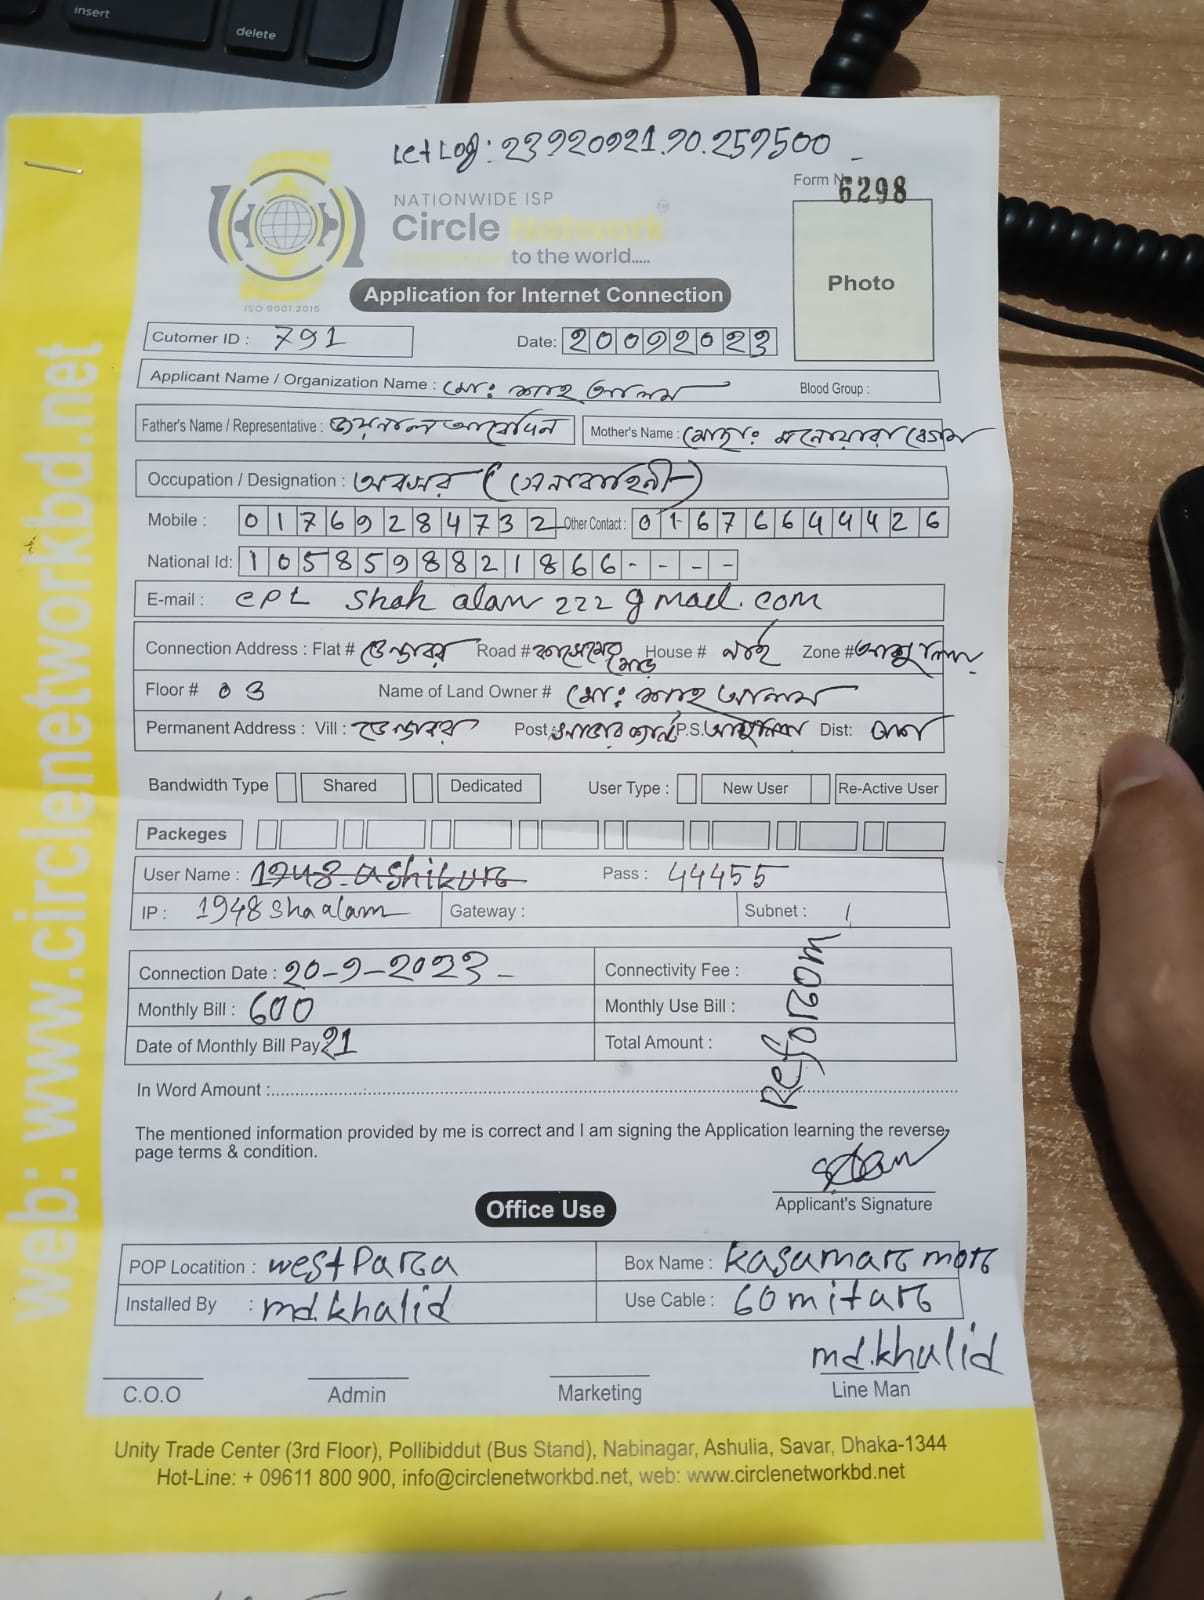 insert
delete
Let Log: 23920921.90.259500
Form N 6298
NATIONWIDE ISP
Circle Network
to the world.....
ISO 9001:2015
Application for Internet Connection
Photo
Cutomer ID : 791
Date: 20092023
Applicant Name / Organization Name : মোঃ শাহ আলম Blood Group :
Father's Name / Representative : জয়নাল আবেদিন Mother's Name : মোছাঃ মনোয়ারা বেগম
Occupation / Designation : অবসর (সেনাবাহিনী)
Mobile : 01769284732 Other Contact : 01676644426
National Id: 1058598821866----
E-mail : cpl shah alam 222 gmail.com
Connection Address : Flat # Road # House # নাই Zone #
Floor # 03 Name of Land Owner # মোঃ শাহ আলম
Permanent Address : Vill : Post : P.S. Dist: ঢাকা
Bandwidth Type Shared Dedicated User Type : New User Re-Active User
Packeges
User Name : 1948-ashikur Pass : 44455
IP : 1948 Shaalam Gateway : Subnet :
Connection Date : 20-9-2023 Connectivity Fee :
Monthly Bill : 600 Monthly Use Bill :
Date of Monthly Bill Pay 21 Total Amount :
In Word Amount :
The mentioned information provided by me is correct and I am signing the Application learning the reverse
page terms & condition.
Applicant's Signature
Office Use
POP Locatition : west Para Box Name : kasumar mor
Installed By : md.khalid Use Cable : 60 mitar
md.khalid
C.O.O Admin Marketing Line Man
Unity Trade Center (3rd Floor), Pollibiddut (Bus Stand), Nabinagar, Ashulia, Savar, Dhaka-1344
Hot-Line: + 09611 800 900, info@circlenetworkbd.net, web: www.circlenetworkbd.net
web: www.circlenetworkbd.net